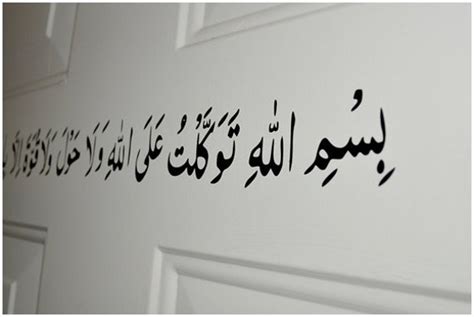 بِسْمِ اللهِ تَوَكَّلْتُ عَلَى اللهِ وَلَا حَوْلَ وَلَا قُوَّةَ اِلَّا